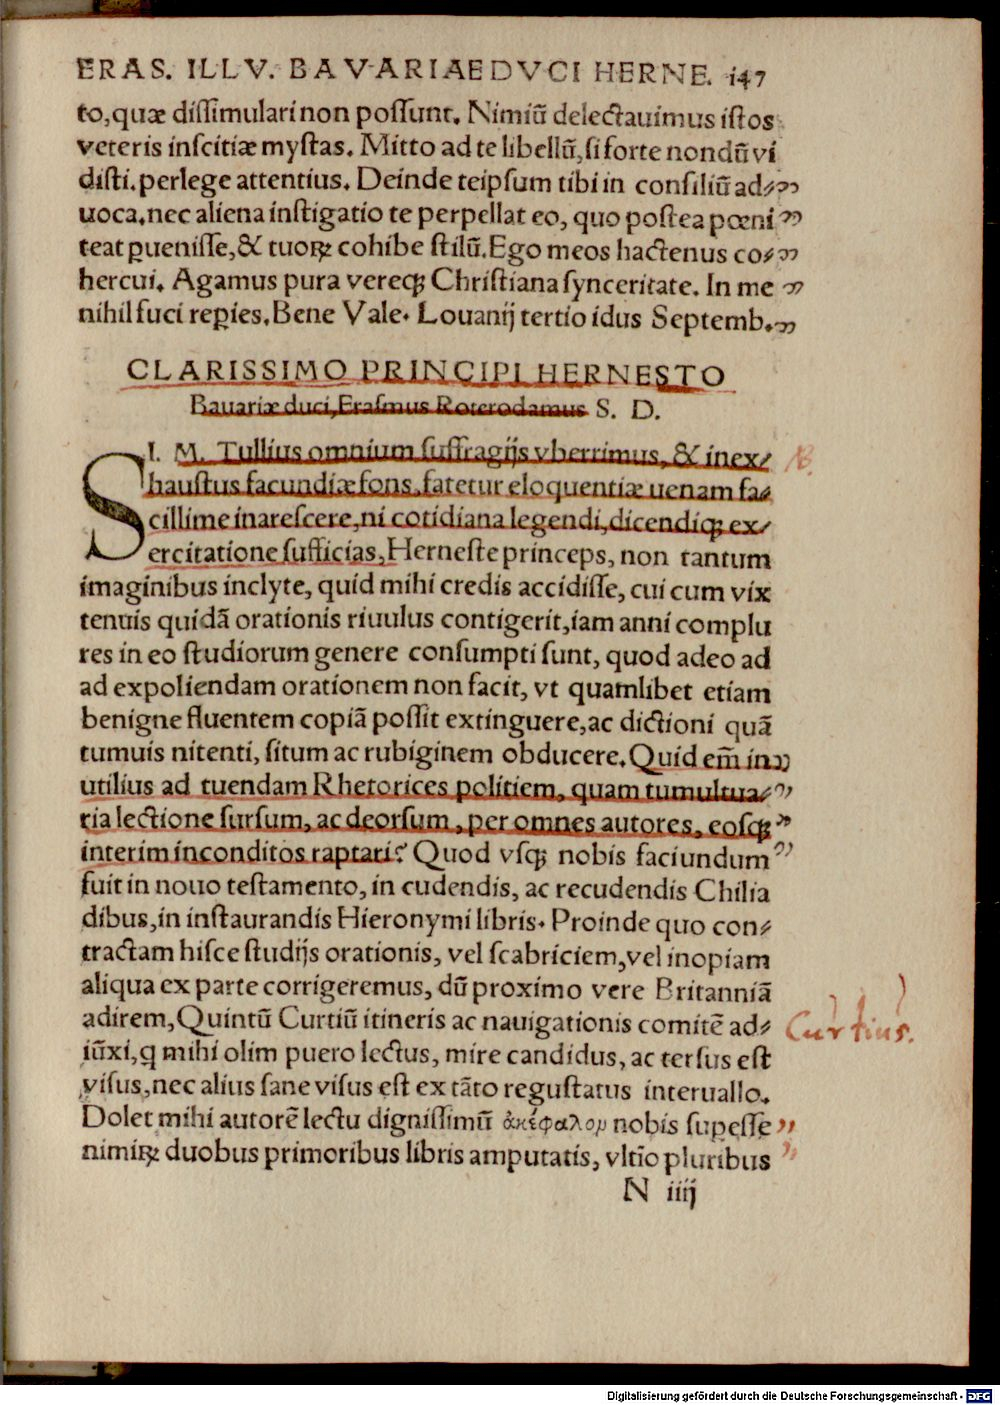 ERAS. ILLV. BAVARIAE DVCI HERNE. 147
to, quæ dissimulari non possunt. Nimiũ delectauimus istos
veteris inscitiæ mystas. Mitto ad te libellũ, si forte nondũ vi
disti. perlege attentius. Deinde teipsum tibi in consiliũ ad⸗
uoca. nec aliena instigatio te perpellat eo, quo postea pœni
teat ꝑuenisse, & tuoꝝ cohibe stilũ. Ego meos hactenus co⸗
hercui. Agamus pura vereqꝫ Christiana synceritate. In me
nihil fuci reꝑies. Bene Vale. Louanij tertio idus Septemb.
CLARISSIMO PRINCIPI HERNESTO
Bauariæ duci, Erasmus Roterodamus S. D.
SI. M. Tullius omnium suffragijs vberrimus, & inex⸗
haustus facundiæ fons, fatetur eloquentiæ uenam fa⸗
cillime inarescere, ni cotidiana legendi, dicendiqꝫ ex⸗
ercitatione sufficias, Herneste princeps, non tantum
imaginibus inclyte, quid mihi credis accidisse, cui cum vix
tenuis quidã orationis riuulus contigerit, iam anni complu
res in eo studiorum genere consumpti sunt, quod adeo ad
ad expoliendam orationem non facit, vt quamlibet etiam
benigne fluentem copiã possit extinguere, ac dictioni quã
tumuis nitenti, situm ac rubiginem obducere. Quid em̃ in
utilius ad tuendam Rhetorices politiem, quam tumultua⸗
ria lectione sursum, ac deorsum, per omnes autores, eosqꝫ
interim inconditos raptari? Quod vsqꝫ nobis faciundum
fuit in nouo testamento, in cudendis, ac recudendis Chilia
dibus, in instaurandis Hieronymi libris. Proinde quo con⸗
tractam hisce studijs orationis, vel scabriciem, vel inopiam
aliqua ex parte corrigeremus, dũ proximo vere Britanniã
adirem, Quintũ Curtiũ itineris ac nauigationis comitẽ ad⸗
iũxi, q mihi olim puero lectus, mire candidus, ac tersus est
visus, nec alius sane visus est ex tãto regustatus interuallo.
Dolet mihi autorẽ lectu dignissimũ ἀκέφαλον nobis suꝑesse
nimiꝝ duobus primoribus libris amputatis, vltĩo pluribus
N iiij
Curtius.
Digitalisierung gefördert durch die Deutsche Forschungsgemeinschaft - DFG